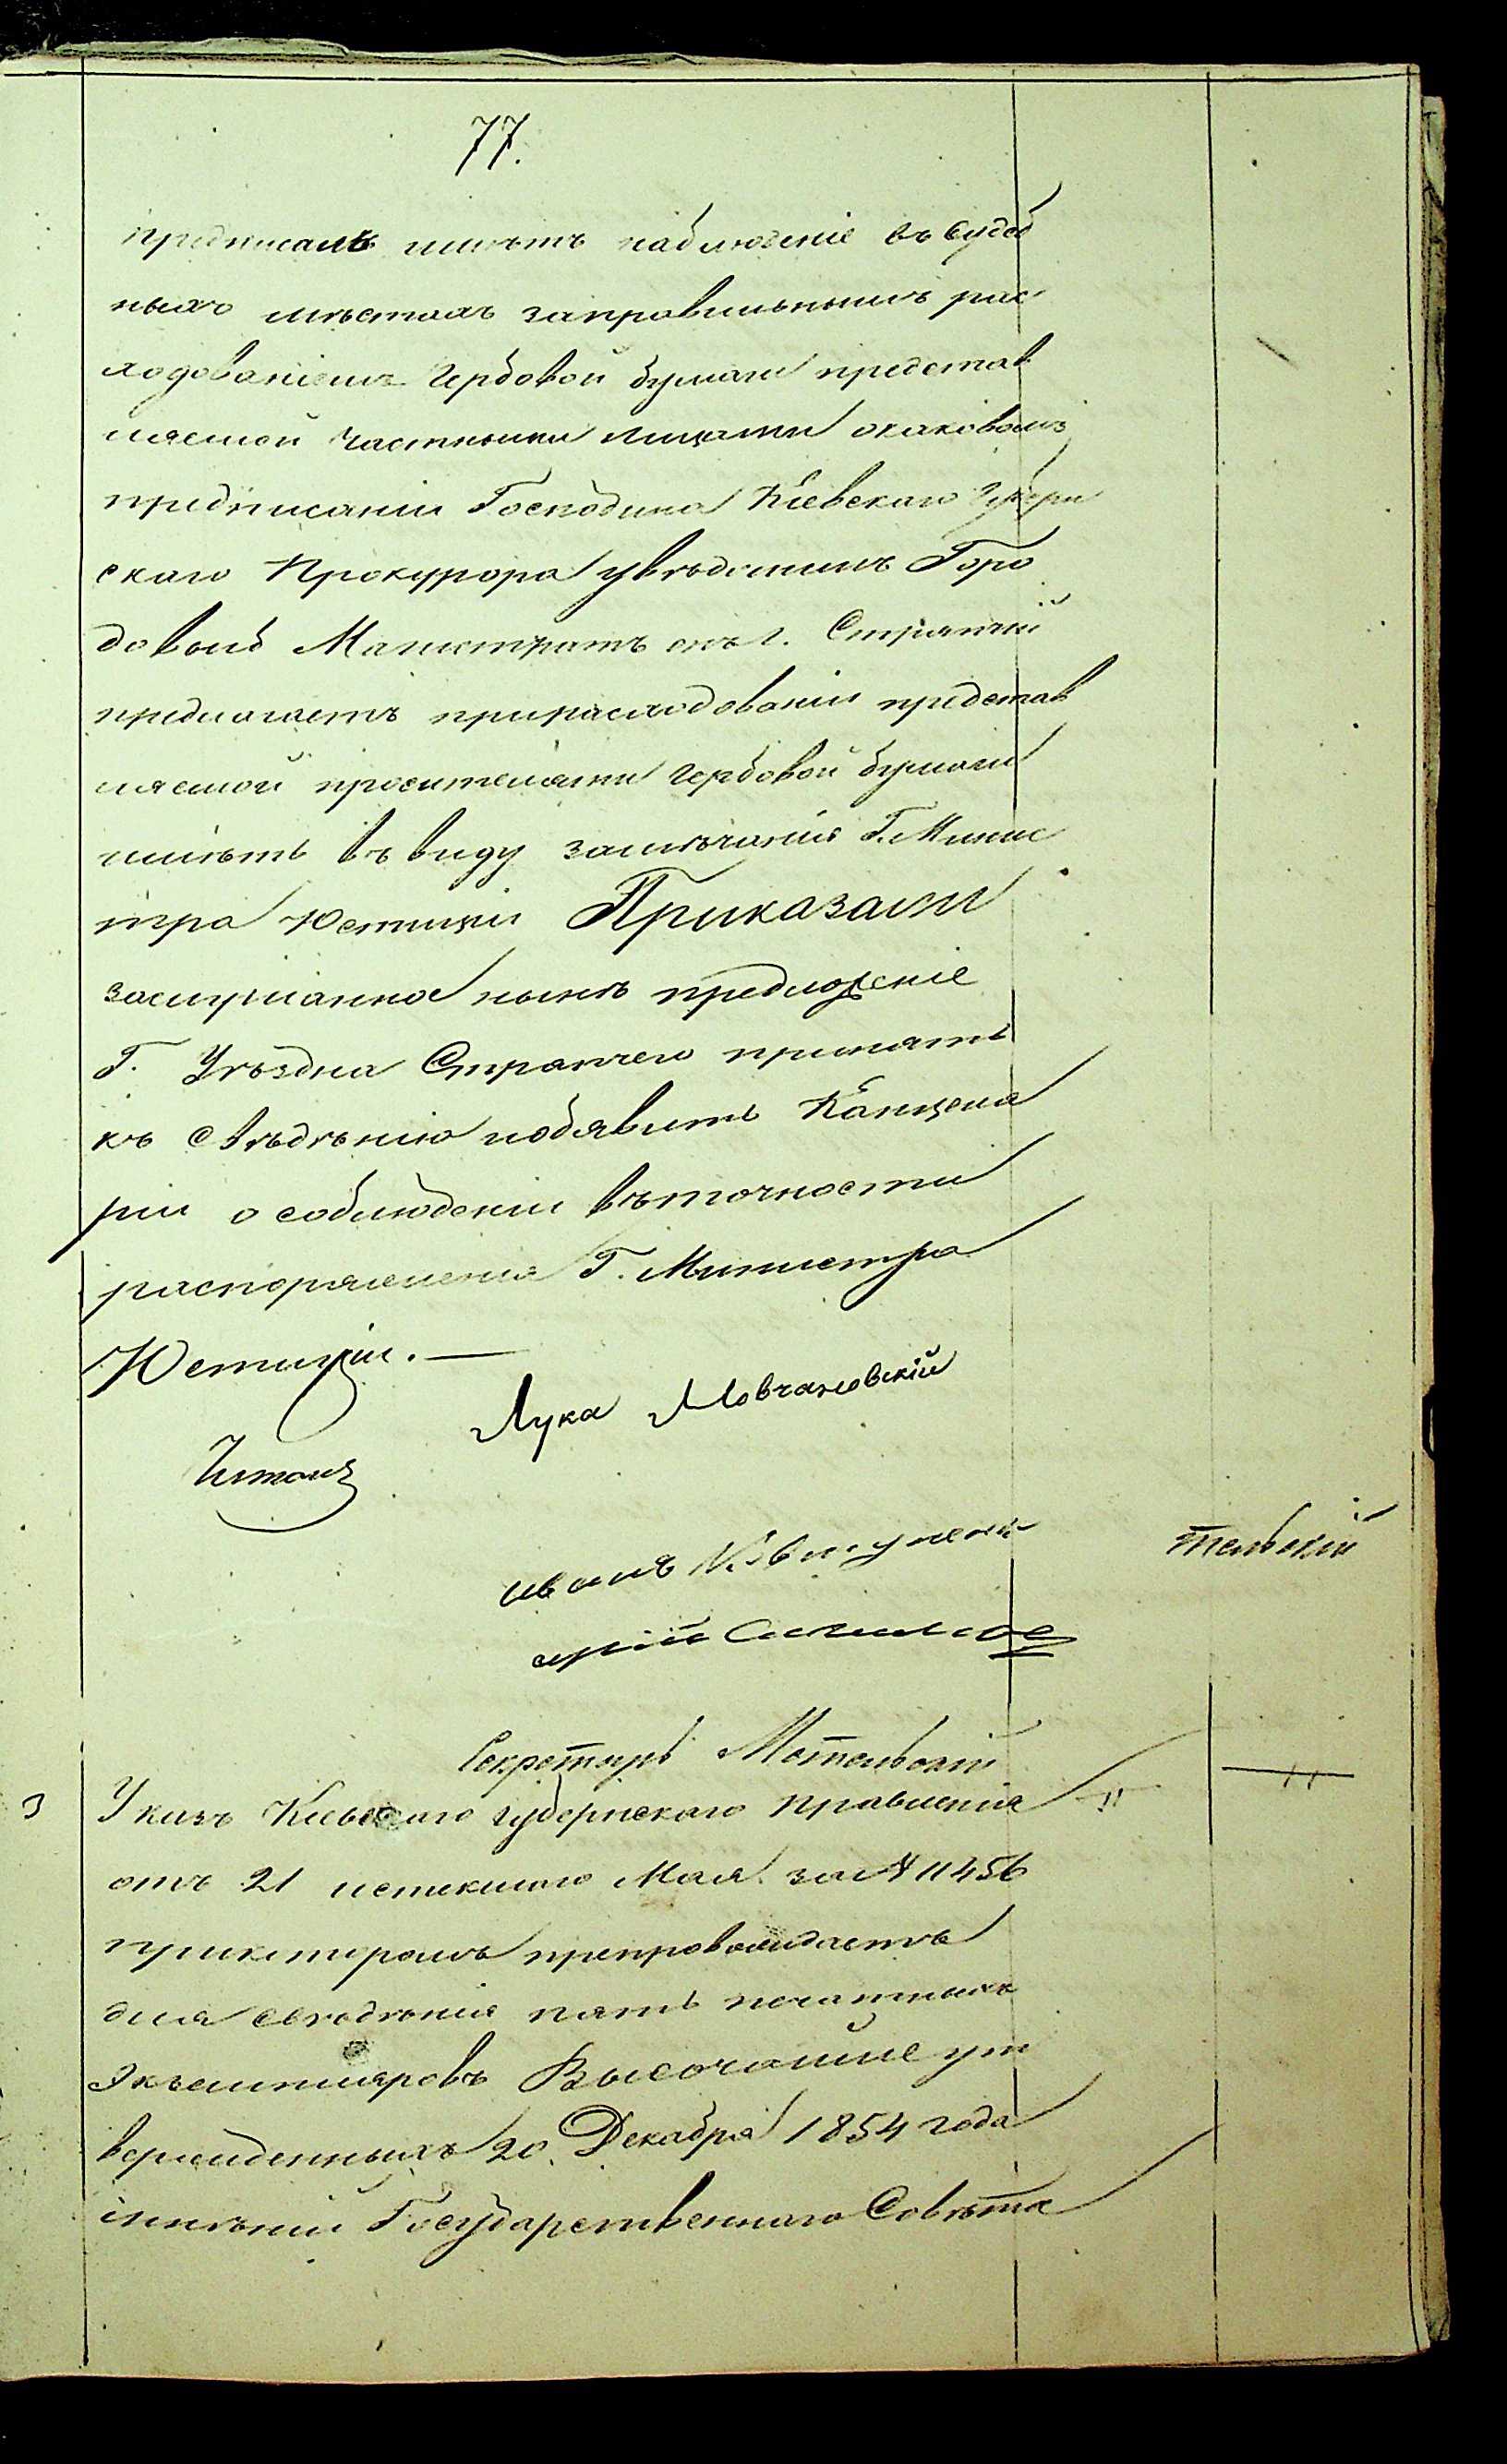 77.
предписалъ имѣть наблюденіе въ Судеб
ныхъ мѣстахъ заправильнымъ рас
ходованіемъ Гербовой бумаги представ
ляемой частными лицами окаковомъ
предписаніи Господина Кіевскаго Губерн
скаго Прокурора увѣдомилъ Горо
довый Магистратъ онъ г. Стряпчій
предлагаетъ прирасходованіи представ
ляемой просителями гербовой бумаги
имѣть въ виду замѣчанія Г. Минис
тра Юстиціи Приказали
заслушанное нынѣ предложеніе
Г. Уѣздна Стряпчего принять
къ Свѣдѣнію иобявить Канцеля
ріи о соблюденіи въточности
распоряженія Г. Министра
Юстиціи.—
Лука Мовчановскій
Читалъ
иванъ
тельскій
Секретарь Мотельскій
3 Указъ Кіевскаго губернскаго правленія
отъ 21 истекшаго Мая за № 11456
прикоторомъ препровождаетъ
для свѣдѣнія пять печатныхъ
экземпляровъ Высочайше ут
вержденныхъ 20. Декабря 1854 года
мнѣній Государственнаго Совѣта